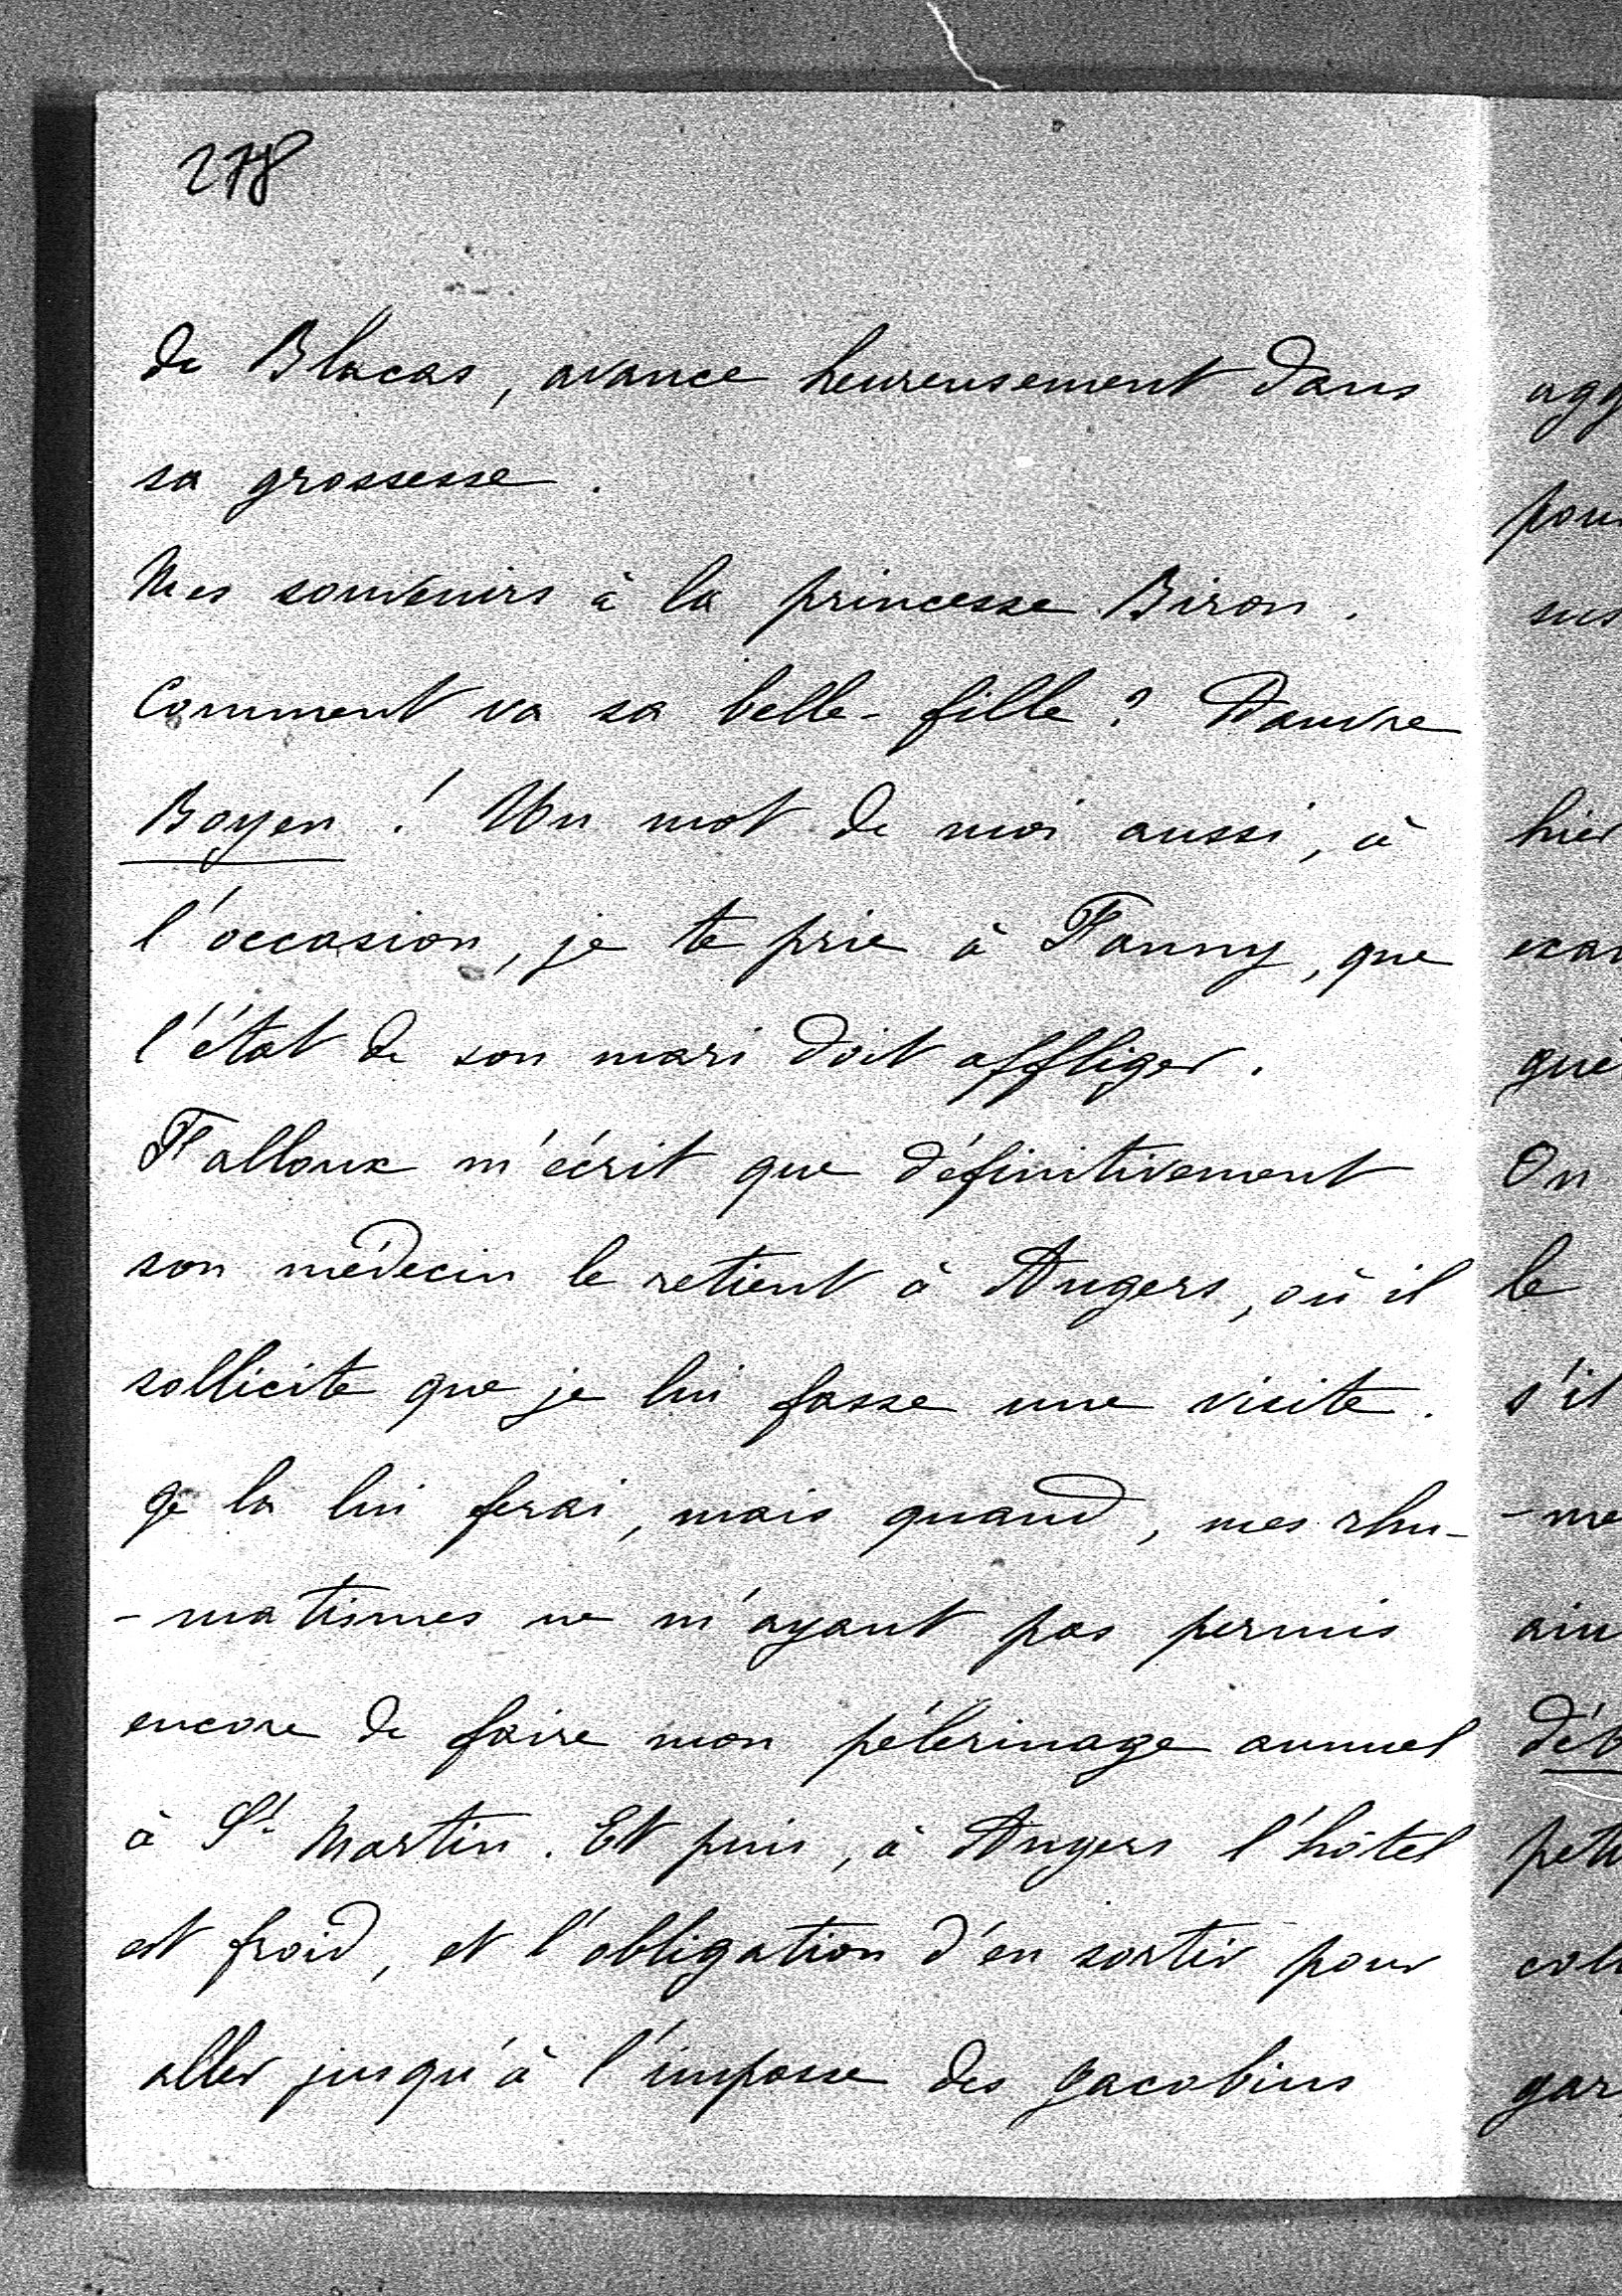 278
de Blacas, avance heureusement dans
sa grossesse.
Mes souvenirs à la princesse Biron.
Comment va sa belle-fille? Pauvre
Boyen! Un mot de moi aussi, à
l'occasion, je te prie à Fanny, que
l'état de son mari doit affliger.
Falloux m'écrit que définitivement
son médecin le retient à Angers, où il
sollicite que je lui fasse une visite.
Je la lui ferai, mais quand, mes rhu-
-matismes ne m'ayant pas permis
encore de faire mon pélerinage annuel
à St. Martin. Et puis, à Angers l'hôtel
est froid, et l'obligation d'en sortir pour
aller jusqu'à l'impasse des Jacobins
pou
hier
On
le
s'il